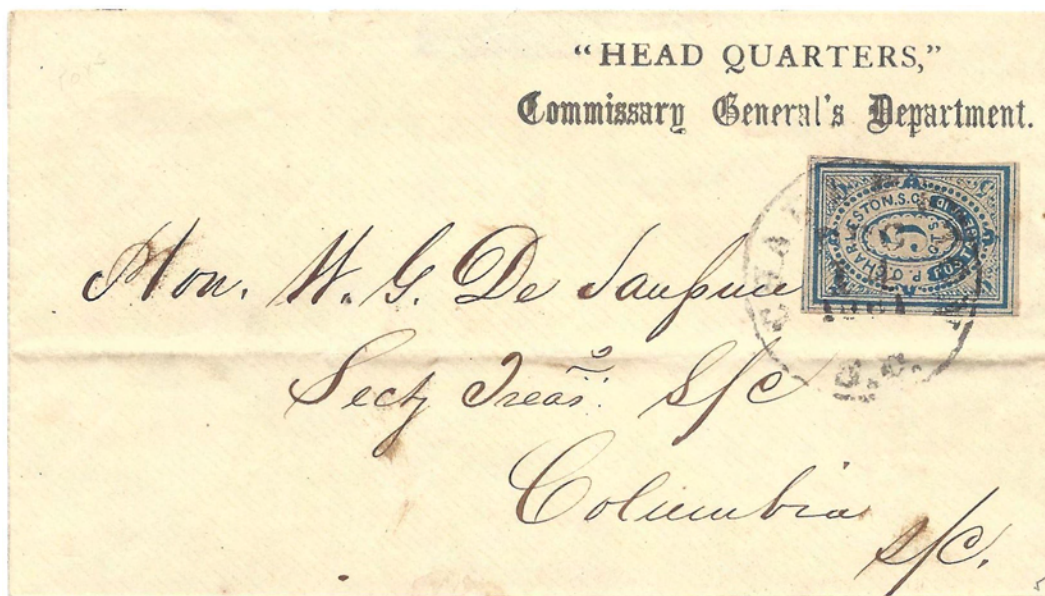 “HEAD QUARTERS,”
Commissary General's Department.
P.O. CHARLESTON, S.C.
5
S.C.
Hon. W. G. De Saussure
Secty Treas. S/C
Columbia
S/C.